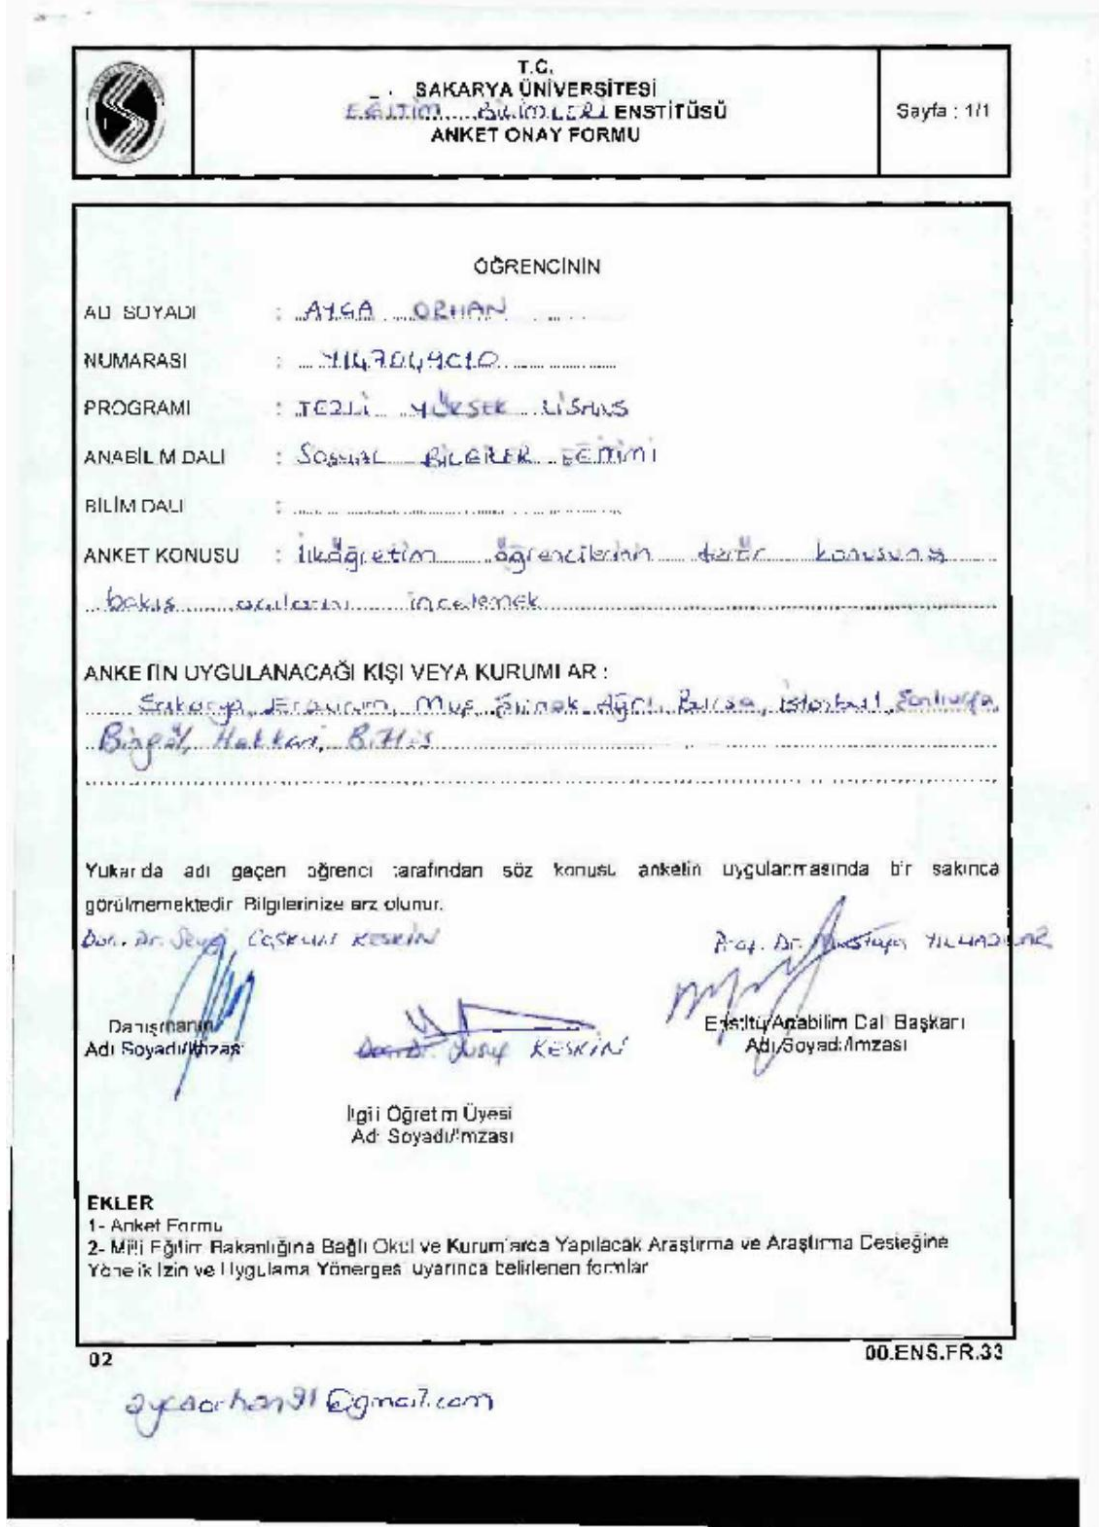 T.C.
SAKARYA ÜNİVERSİTESİ
EĞİTİM BİLİMLERİ ENSTİTÜSÜ
ANKET ONAY FORMU
Sayfa : 1/1
ÖĞRENCİNİN
ADI SOYADI : AYÇA ORHAN
NUMARASI :
PROGRAMI : TEZLİ YÜKSEK LİSANS
ANABİLİM DALI : SOSYAL BİLGİLER EĞİTİMİ
BİLİM DALI :
ANKET KONUSU : İlköğretim öğrencilerinin terör konusuna
bakış açılarını incelemek
ANKETİN UYGULANACAĞI KİŞİ VEYA KURUMLAR :
Sakarya, Erzurum, Muş, Şırnak, Ağrı, Bursa, İstanbul, Şanlıurfa,
Bingöl, Hakkari, Bitlis
Yukarıda adı geçen öğrenci tarafından söz konusu anketin uygulanmasında bir sakınca
görülmemektedir. Bilgilerinize arz olunur.
Doç. Dr. Sevgi COŞKUN KESKİN
Prof. Dr. Mustafa
Danışmanın
Adı Soyadı/İmzası
Yusuf KESKİN
Enstitü/Anabilim Dalı Başkanı
Adı/Soyadı/İmzası
İlgili Öğretim Üyesi
Adı Soyadı/İmzası
EKLER
1- Anket Formu
2- Milli Eğitim Bakanlığına Bağlı Okul ve Kurumlarda Yapılacak Araştırma ve Araştırma Desteğine
Yönelik İzin ve Uygulama Yönergesi uyarınca belirlenen formlar
02
00.ENS.FR.33
aycaorhan91@gmail.com